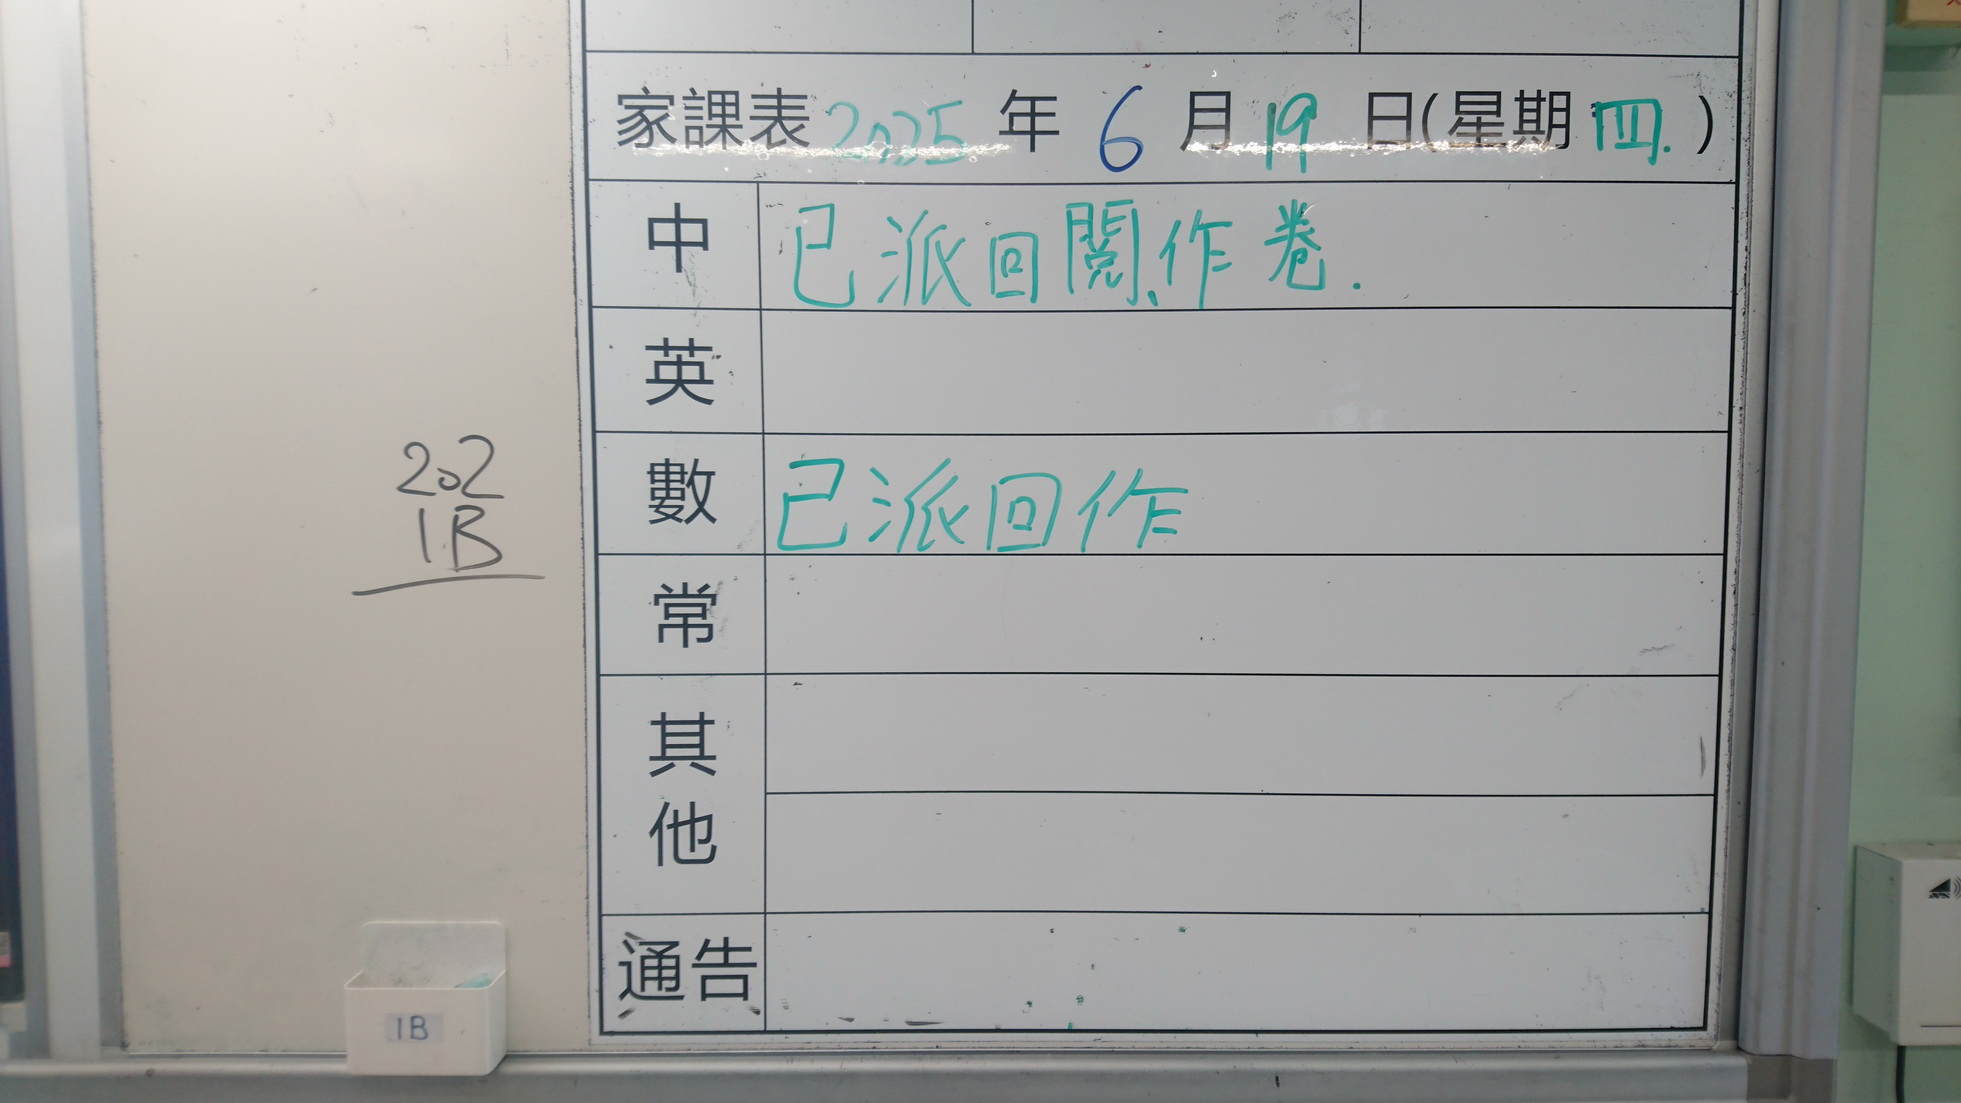 家課表 2025 年 6 月 19 日(星期 四.)
中 已派回閱、作卷.
英
202
1B
數 已派回作
常
其他
通告
1B